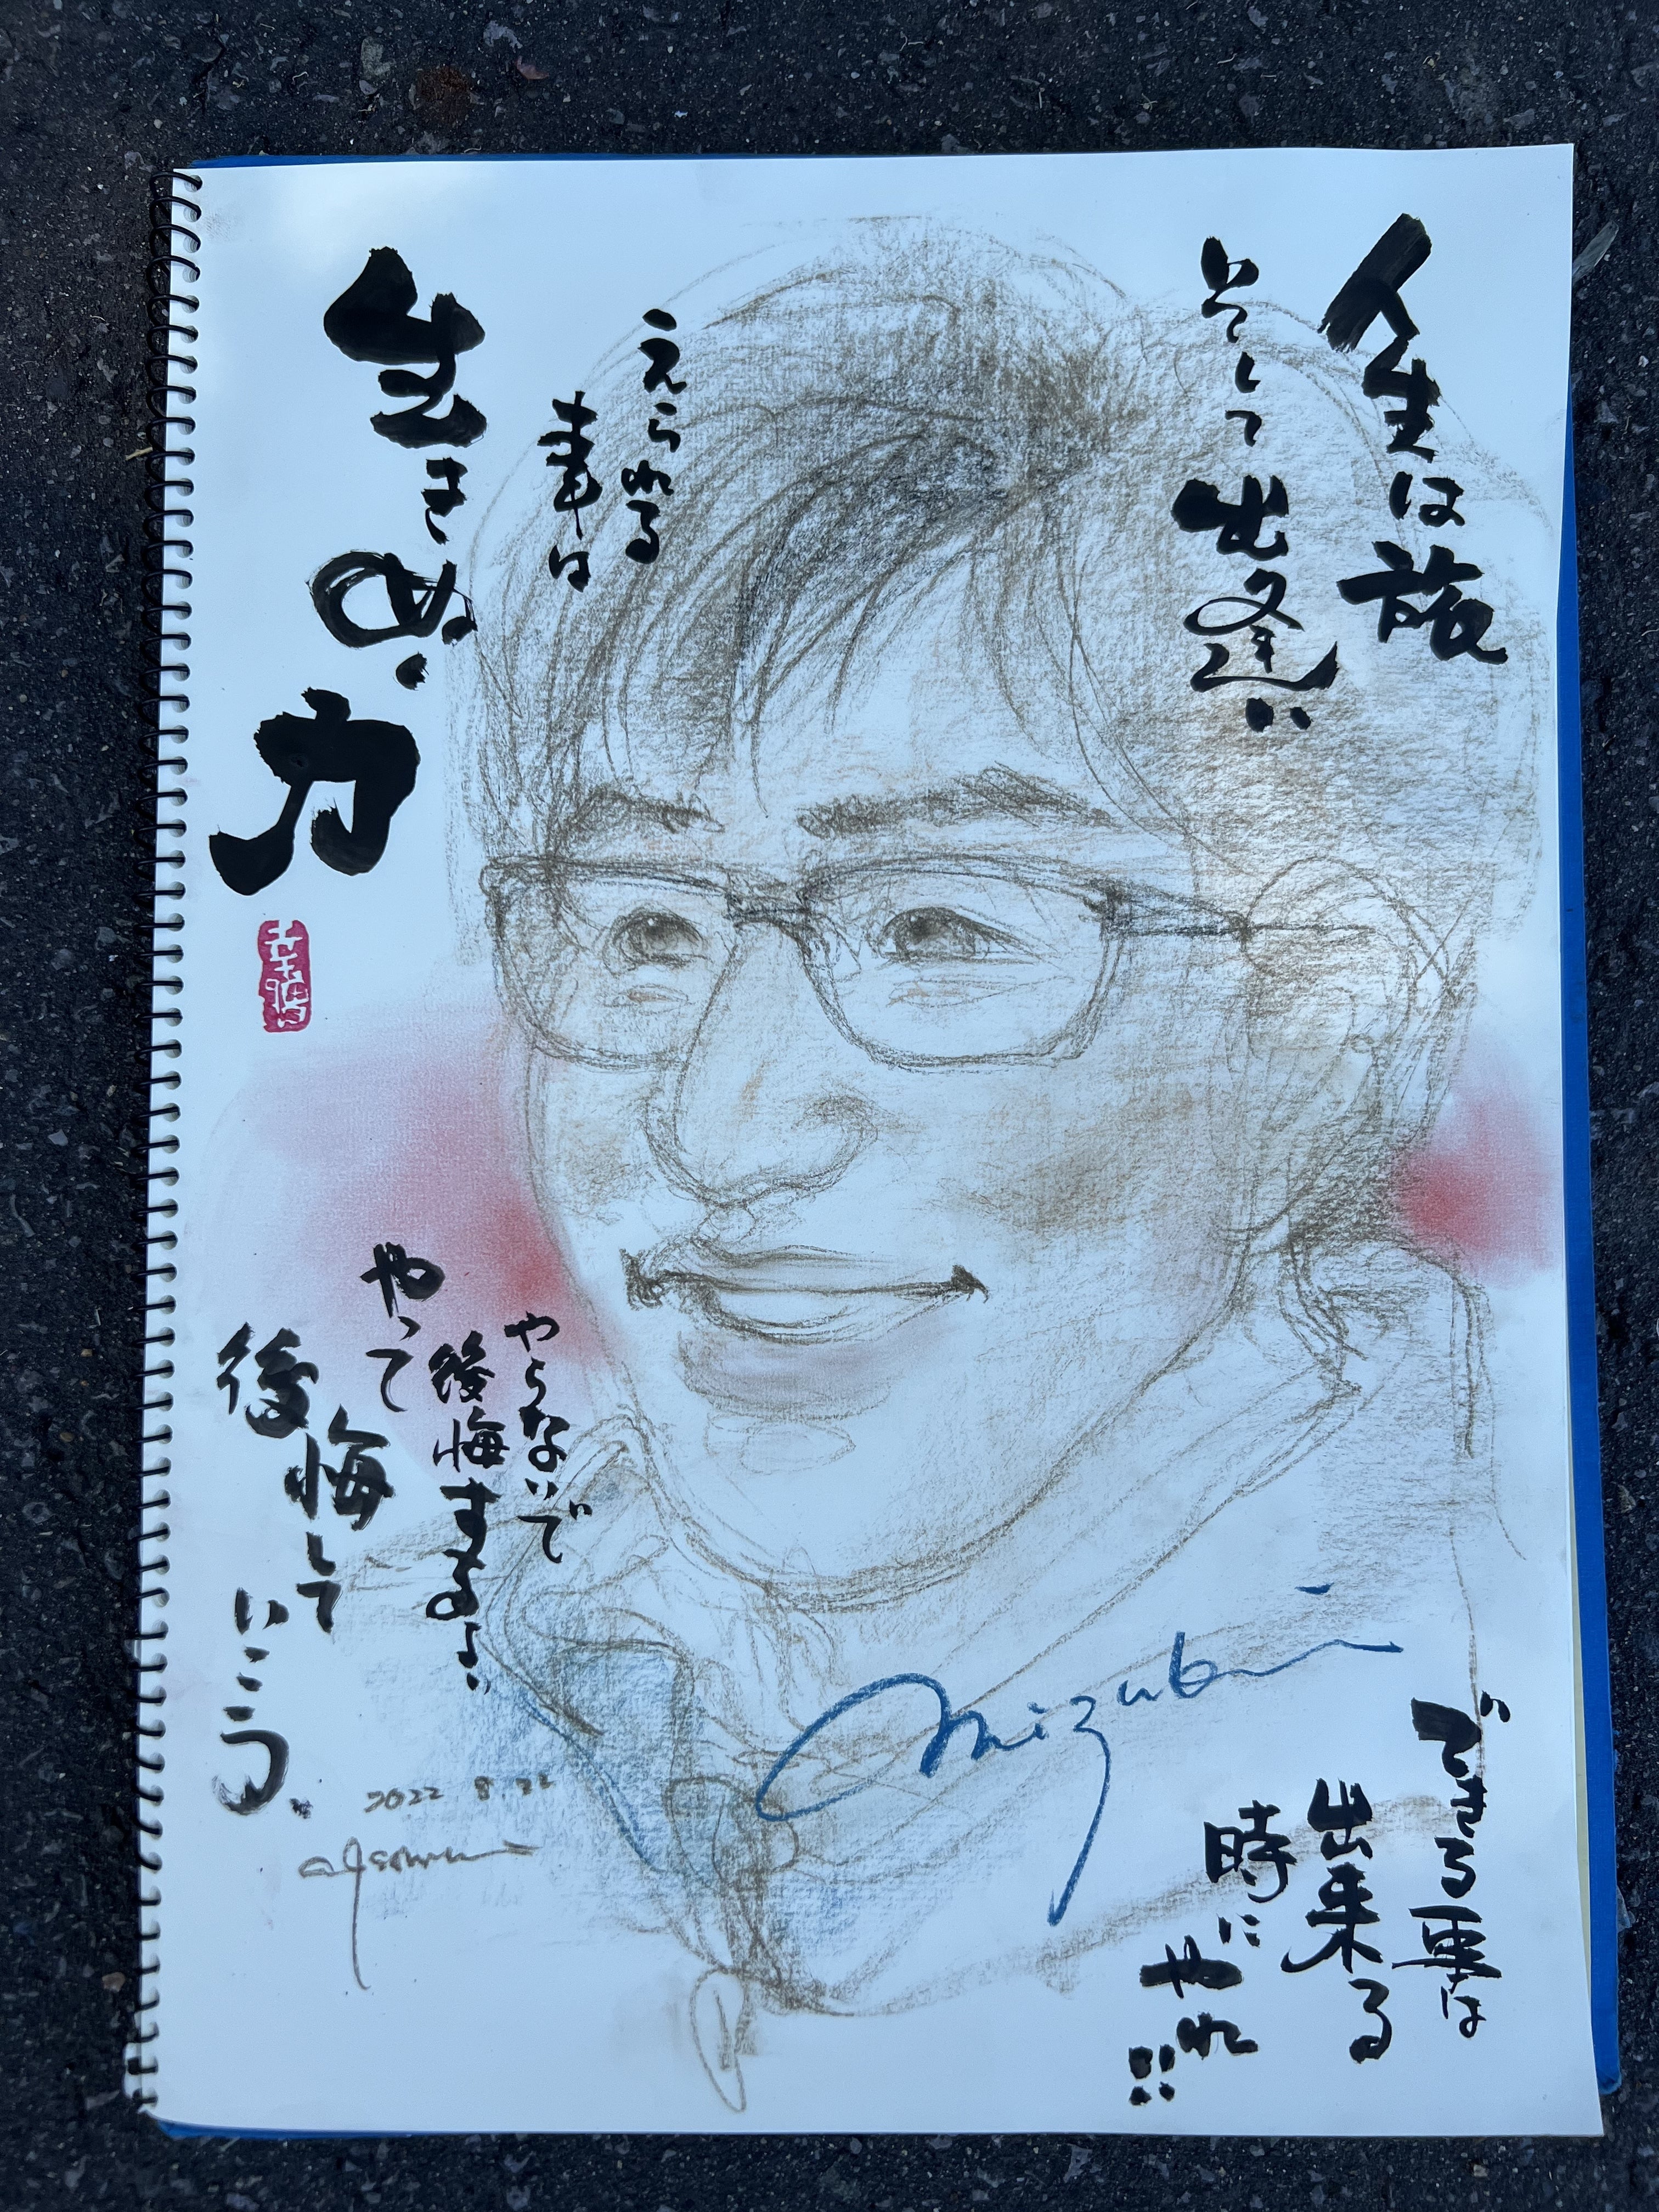 人生は旅
そして出逢い
えられる
事は
生きぬく力
幸福
やらないで
後悔するより
やって
後悔して
いこう、
2022 8.22
mizuki
できる事は
出来る
時に
やれ!!